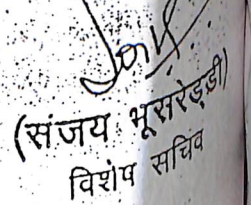 (संजय भूसरेड्डी)
विशेष सचिव